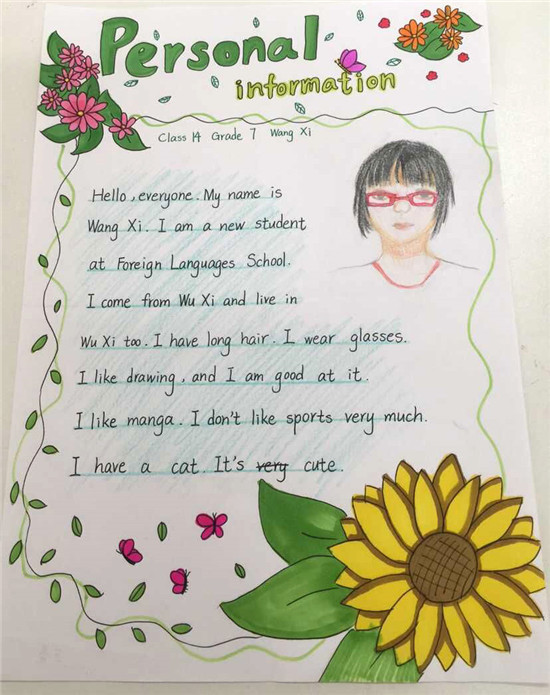 Personal
information
Class 14 Grade 7 Wang Xi
Hello, everyone. My name is
Wang Xi. I am a new student
at Foreign Languages School.
I come from Wu Xi and live in
Wu Xi too. I have long hair. I wear glasses.
I like drawing, and I am good at it.
I like manga. I don't like sports very much.
I have a cat. It's very cute.